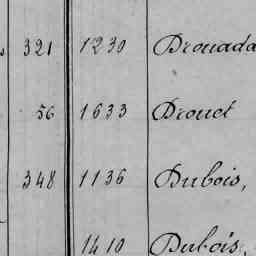 321 1230 Drouada
56 1633 Drouet
348 1136 Dubois,
1410 Dubois,